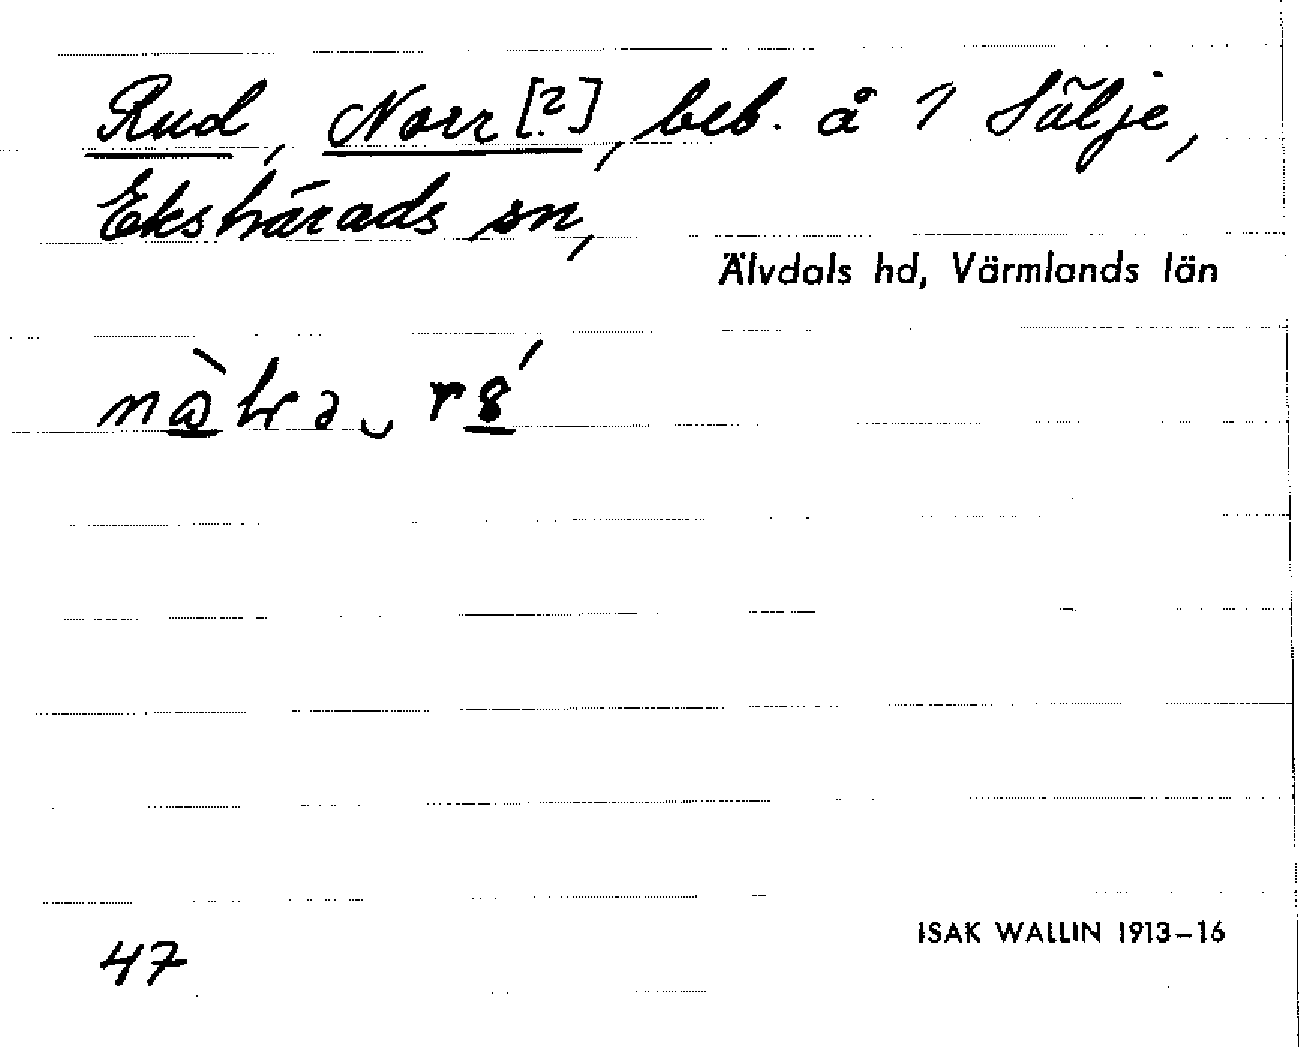 Rud, Norr [?], beb. å 1 Sälje,
Ekshärads sn,
Älvdals hd, Värmlands län
47
ISAK WALLIN 1913–16